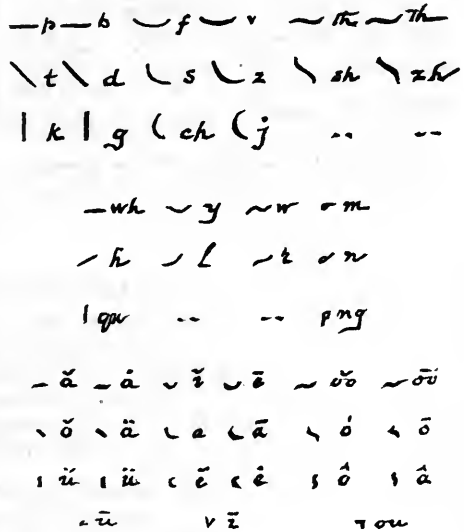 p b f v th Th
t d s z sh zh
k g ch j -- --
wh y w m
h l r n
qu -- -- ng
ă ȧ ĭ ē ŏŏ ōō
ŏ ä e ā ȯ ō
ŭ ü ĕ ė ô â
ū ī ou